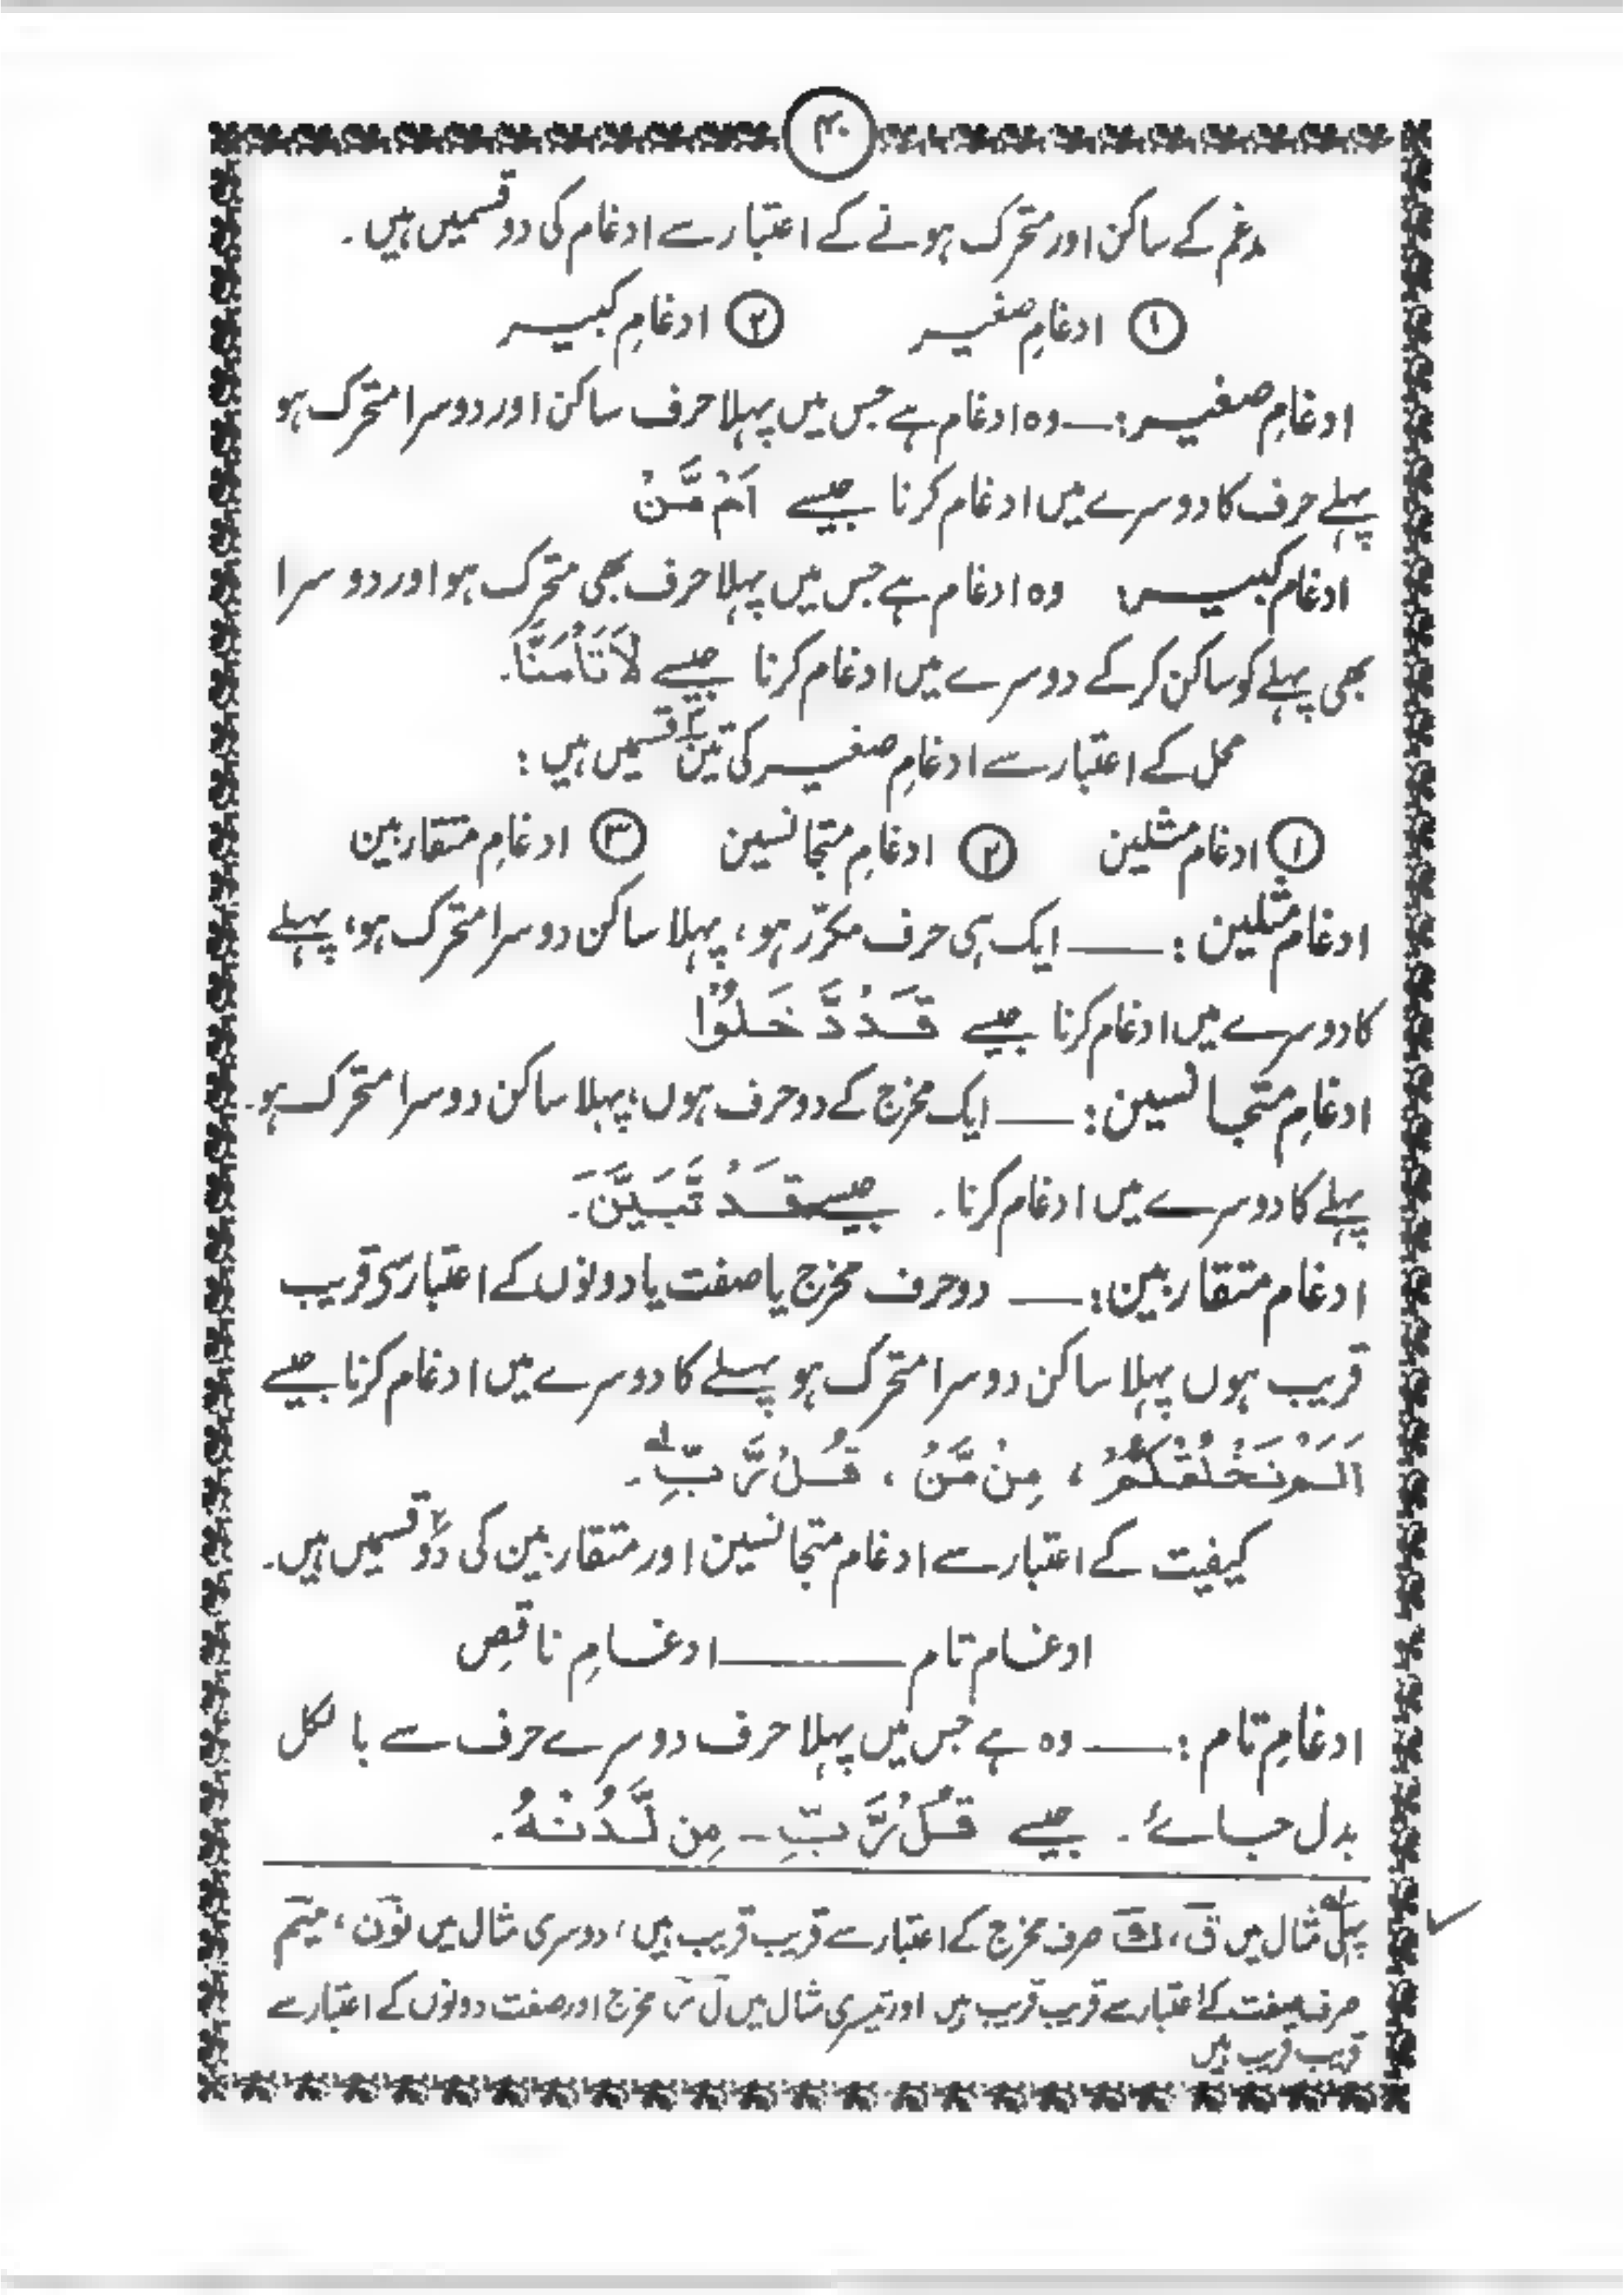 ۴۰
مدغم کے ساکن اور متحرک ہونے کے اعتبار سے ادغام کی دو قسمیں ہیں ۔
① ادغامِ صغیر ② ادغامِ کبیر
ادغامِ صغیر :— وہ ادغام ہے جس میں پہلا حرف ساکن اور دوسرا متحرک ہو
پہلے حرف کا دوسرے میں ادغام کرنا جیسے اَمْ مَّنْ
ادغام کبیر وہ ادغام ہے جس میں پہلا حرف بھی متحرک ہو اور دوسرا
بھی پہلے کو ساکن کر کے دوسرے میں ادغام کرنا جیسے لَا تَأْمَنَّا ۔
محل کے اعتبار سے ادغامِ صغیر کی تین۳ قسمیں ہیں :
① ادغام مثلین ② ادغامِ متجانسین ③ ادغامِ متقاربین
ادغام مثلین :— ایک ہی حرف مکرّر ہو ، پہلا ساکن دوسرا متحرک ہو ، پہلے
کا دوسرے میں ادغام کرنا جیسے قَدْ دَّخَلُوْا
ادغامِ متجانسین :— ایک مخرج کے دو حرف ہوں ، پہلا ساکن دوسرا متحرک ہو ۔
پہلے کا دوسرے میں ادغام کرنا ۔ جیسے قَدْ تَّبَیَّنَ ۔
ادغام متقاربین :— دو حرف مخرج یا صفت یا دونوں کے اعتبار سے قریب
قریب ہوں پہلا ساکن دوسرا متحرک ہو پہلے کا دوسرے میں ادغام کرنا جیسے
اَلَمْ نَخْلُقْكُّمْ ، مِنْ مَّنْ ، قُلْ رَّبِّ لہ ۔
کیفیت کے اعتبار سے ادغام متجانسین اور متقاربین کی دو۲ قسمیں ہیں ۔
ادغام تام —— ادغامِ ناقِص
ادغامِ تام :— وہ ہے جس میں پہلا حرف دوسرے حرف سے بالکل
بدل جائے ۔ جیسے قُلْ رَّبِّ – مِن لَّدُنْهُ ۔
لہ پہلی مثال میں ق ، ك صرف مخرج کے اعتبار سے قریب قریب ہیں ، دوسری مثال میں نون ، میم
صرف صفت کے اعتبار سے قریب قریب ہیں اور تیسری مثال میں ل ر مخرج اور صفت دونوں کے اعتبار سے
قریب قریب ہیں